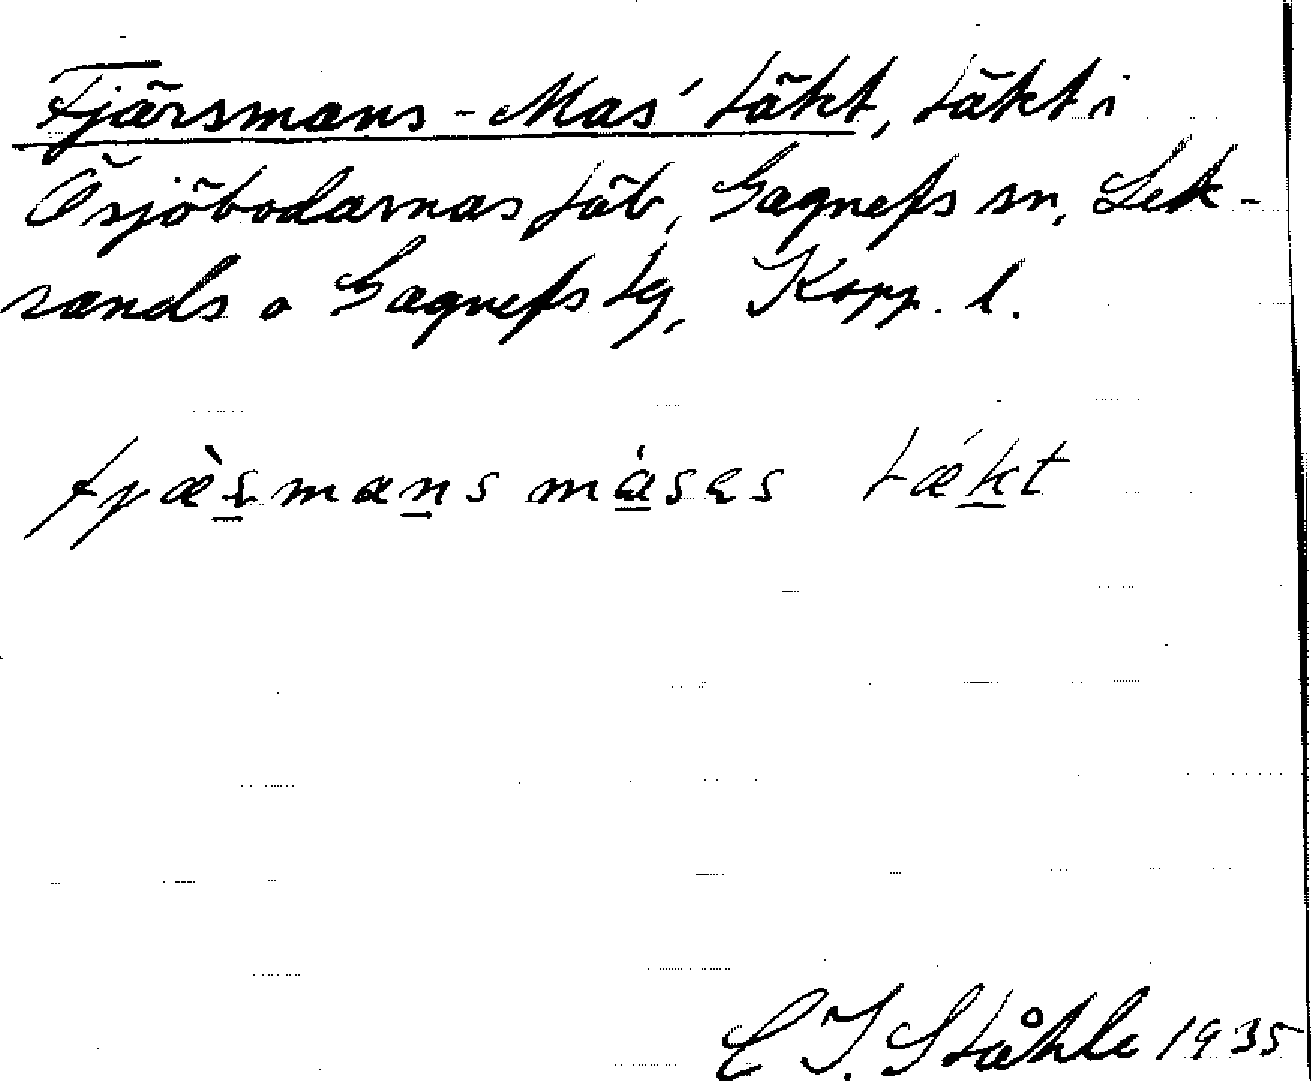 Fjärsmans-Mas' täkt, täkt i
Ösjöbodarnas fäb, Gagnefs sn, Lek-
sands o Gagnefs tg, Kopp. l.
fjæ̀smans másas tækt
C I Ståhle 1935